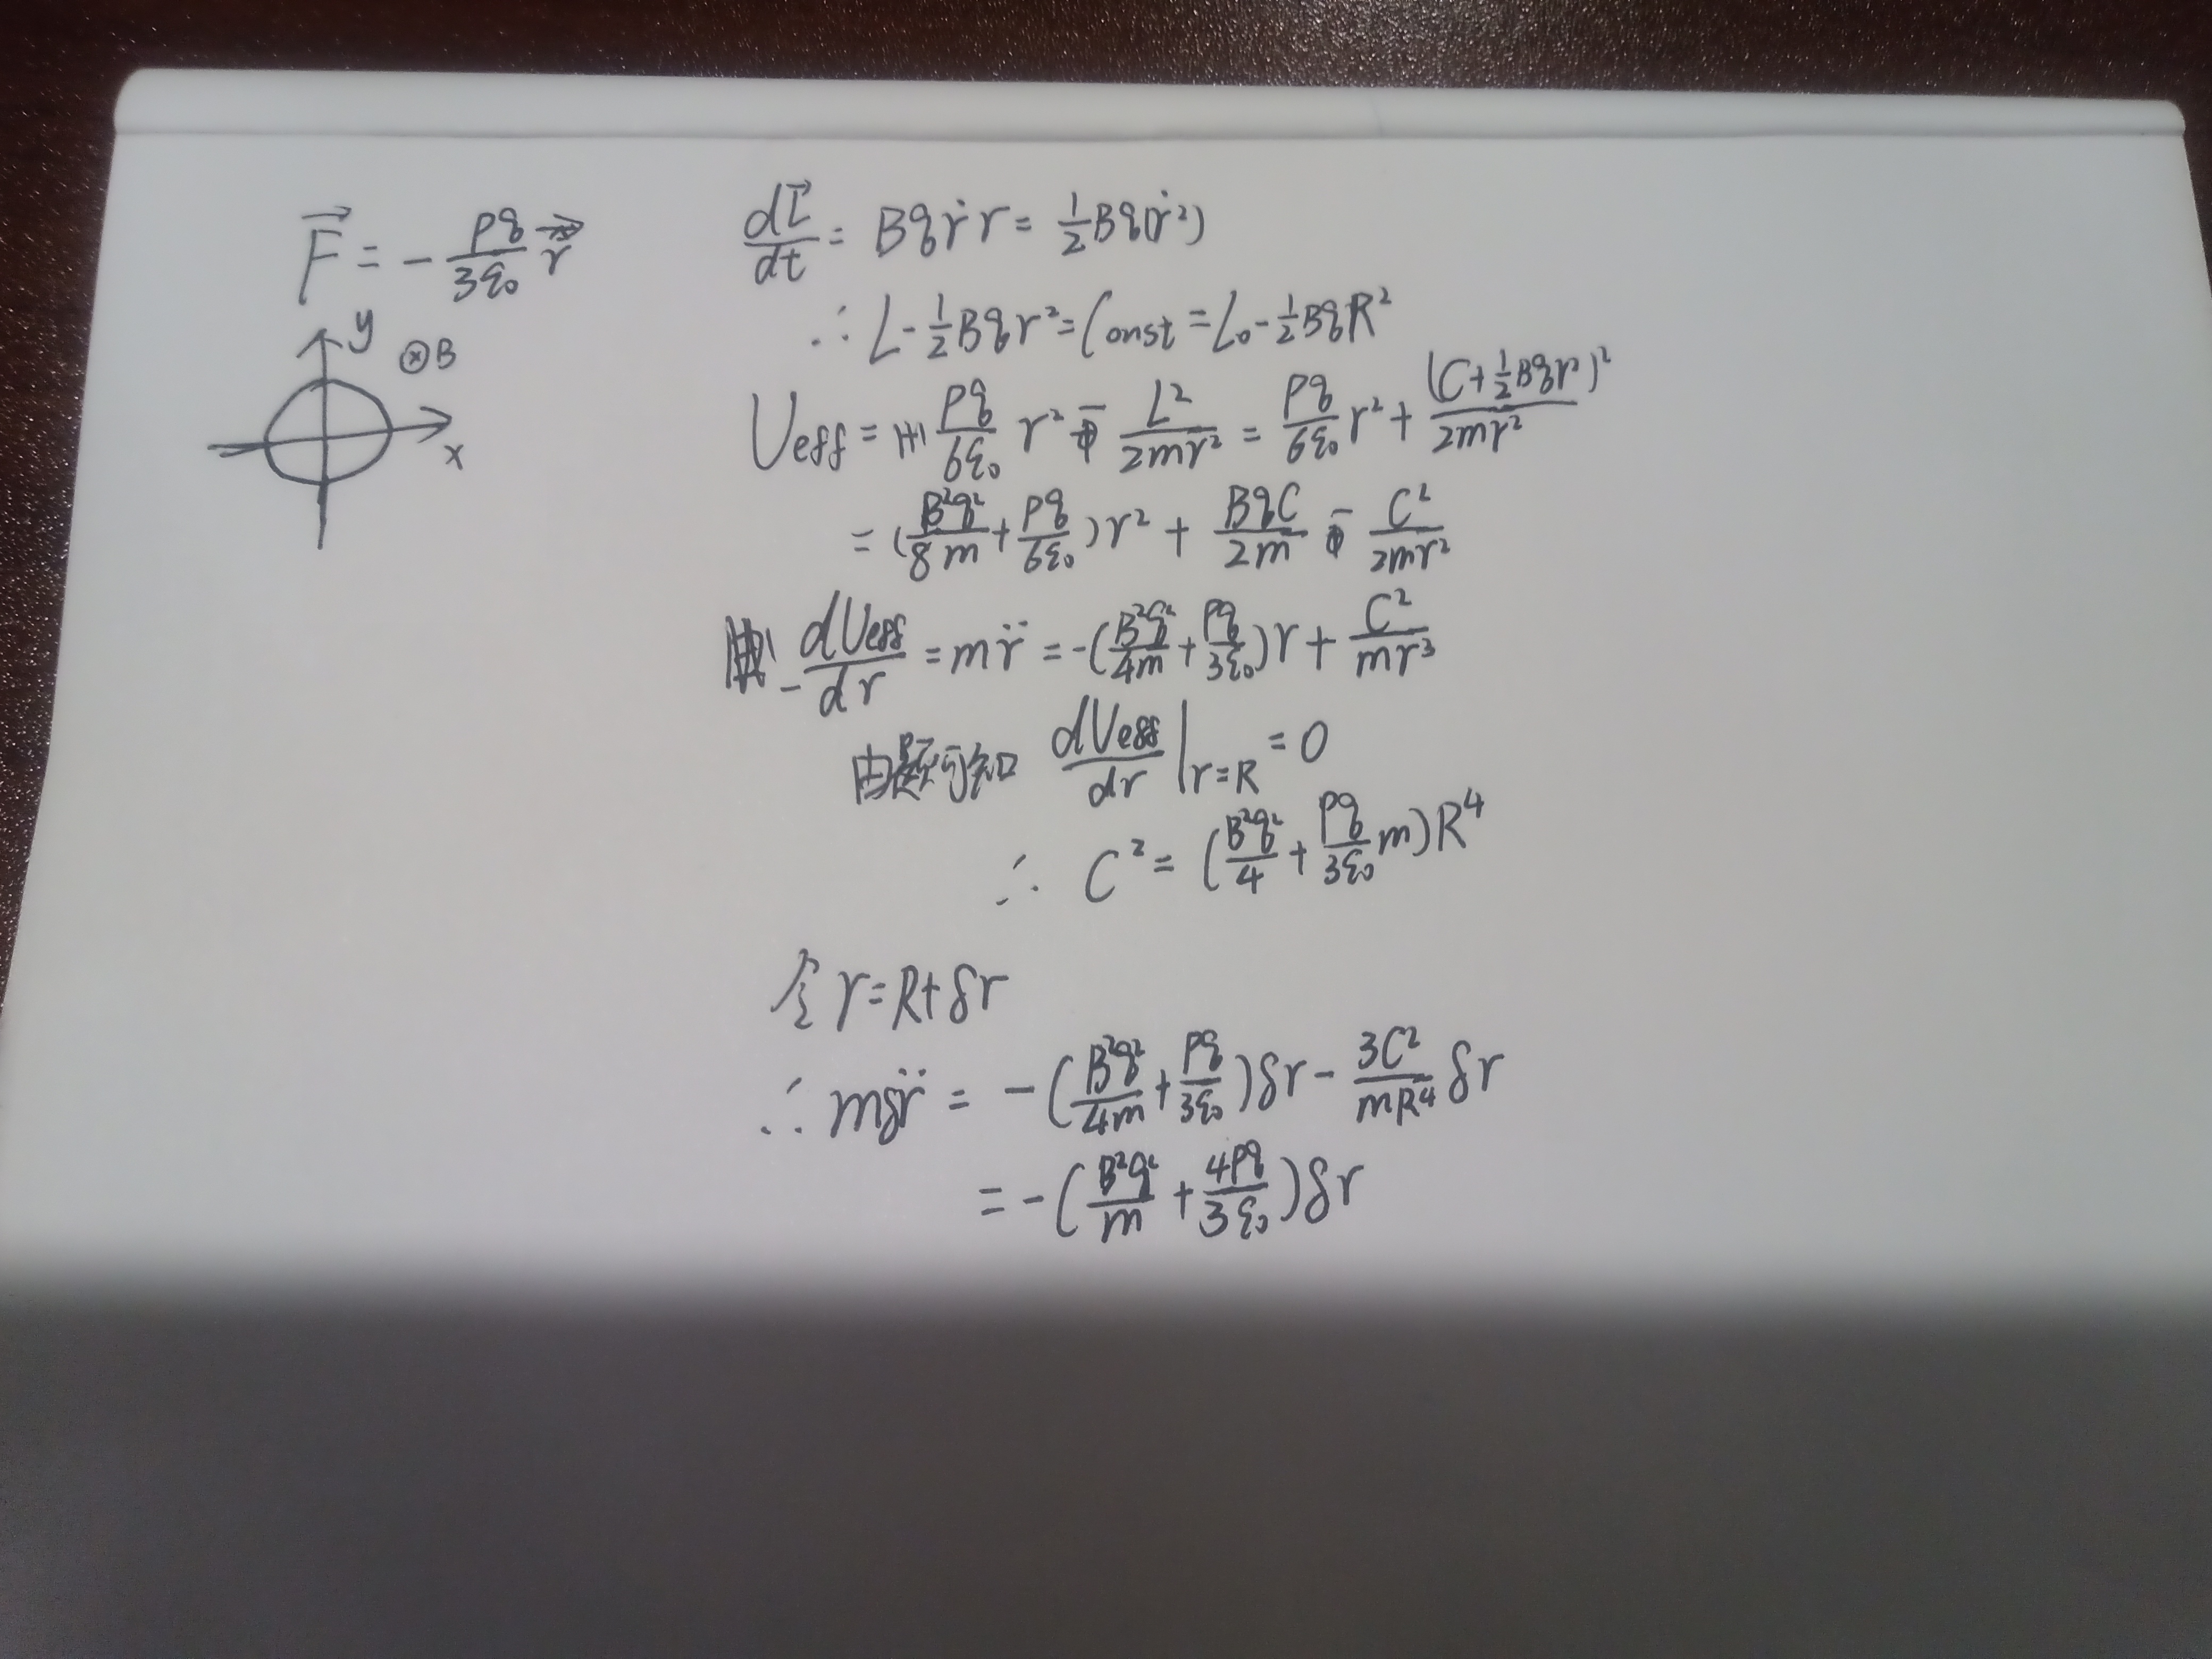 F⃗ = - ρq/3ε₀ r⃗
y
⊗B
x
dL⃗/dt = Bqṙr = ½Bq(ṙ²)
∴ L - ½Bqr² = Const = L₀ - ½BqR²
Ueff = ρq/6ε₀ r² L²/2mr² = ρq/6ε₀ r² + (C + ½Bqr²)²/2mr²
= (B²q²/8m + ρq/6ε₀)r² + BqC/2m C²/2mr²
- dUeff/dr = mr̈ = -(B²q²/4m + ρq/3ε₀)r + C²/mr³
由题可知 dUeff/dr |r=R = 0
∴ C² = (B²q²/4 + ρq/3ε₀ m)R⁴
令 r = R + δr
∴ mδr̈ = -(B²q²/4m + ρq/3ε₀)δr - 3C²/mR⁴ δr
= -(B²q²/m + 4ρq/3ε₀)δr